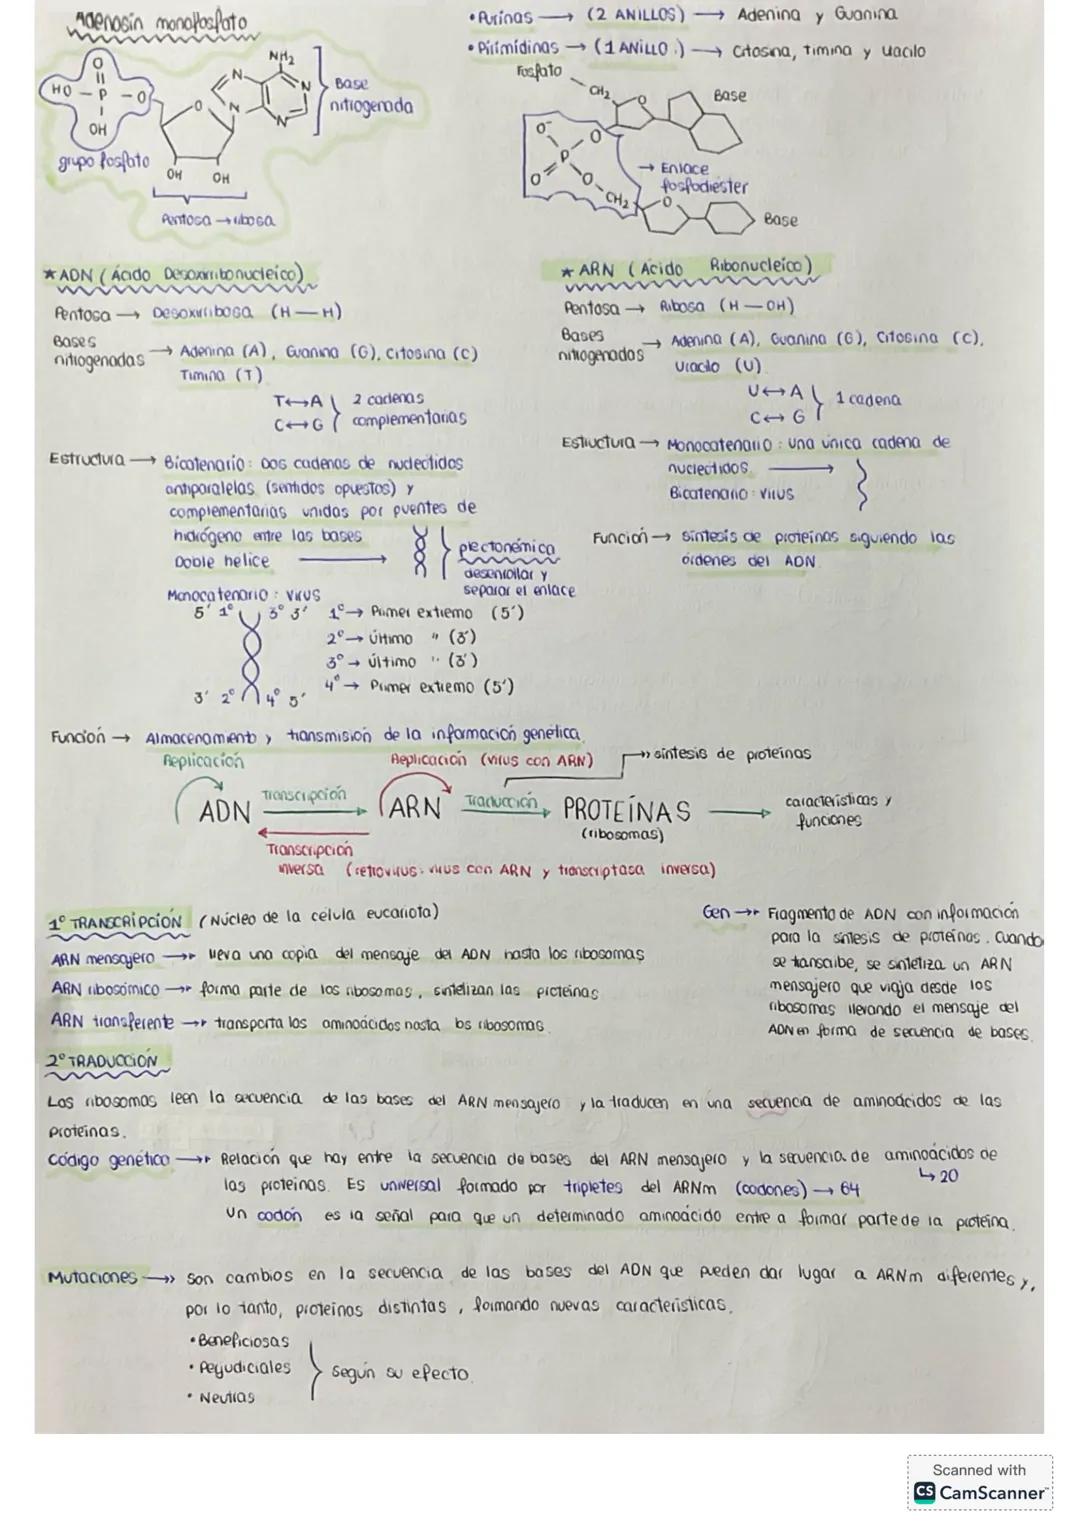 Adenosín monofosfato
• Purinas → (2 ANILLOS) → Adenina y Guanina
• Pirimidinas → (1 ANILLO.) → Citosina, timina y uacilo
O
HO - P - O
OH
grupo fosfato
N
N
N
N
NH2
O
OH OH
Pentosa → ribosa
Base
nitrogenada
Fosfato
CH2
O
Base
O-
O
P
O
O
CH2
O
Base
→ Enlace
fosfodiester
* ADN (Ácido Desoxirribonucleico)
Pentosa → Desoxirribosa (H — H)
Bases
nitrogenadas → Adenina (A), Guanina (G), Citosina (C)
Timina (T)
T↔A
C↔G
2 cadenas
complementarias
Estructura → Bicatenario: Dos cadenas de nucleótidos
antiparalelas (sentidos opuestos) y
complementarias unidas por puentes de
hidrógeno entre las bases
Doble helice →
plectonémica
desenrollar y
separar el enlace
Monocatenario: virus
5' 1º 3º 3'
3' 2º 4º 5'
1º → Primer extremo (5')
2º → Último " (3')
3º → último " (3')
4º → Primer extremo (5')
* ARN (Ácido Ribonucleico)
Pentosa → Ribosa (H — OH)
Bases
nitrogenadas → Adenina (A), Guanina (G), Citosina (C),
Uracilo (U)
U↔A
C↔G
1 cadena
Estructura → Monocatenario: una única cadena de
nucleótidos →
Bicatenario: virus
Función → síntesis de proteinas siguiendo las
órdenes del ADN
Función → Almacenamiento y transmisión de la información genética
Replicación
Replicación (virus con ARN)
→ síntesis de proteinas
ADN
Transcripción
ARN
Traducción
PROTEÍNAS
(ribosomas)
características y
funciones
Transcripción
inversa (retrovirus: virus con ARN y transcriptasa inversa)
1º TRANSCRIPCIÓN (Núcleo de la célula eucariota)
ARN mensajero → lleva una copia del mensaje del ADN hasta los ribosomas
ARN ribosómico → forma parte de los ribosomas, sintetizan las proteínas
ARN transferente → transporta los aminoácidos hasta los ribosomas
Gen → Fragmento de ADN con información
para la síntesis de proteínas. Cuando
se transcribe, se sintetiza un ARN
mensajero que viaja desde los
ribosomas llevando el mensaje del
ADN en forma de secuencia de bases.
2º TRADUCCIÓN
Los ribosomas leen la secuencia de las bases del ARN mensajero y la traducen en una secuencia de aminoácidos de las
proteínas.
Código genético → Relación que hay entre la secuencia de bases del ARN mensajero y la secuencia de aminoácidos de
↳ 20
las proteinas. Es universal formado por tripletes del ARNm (codones) → 64
Un codón es la señal para que un determinado aminoácido entre a formar parte de la proteína.
Mutaciones → Son cambios en la secuencia de las bases del ADN que pueden dar lugar a ARNm diferentes y,
por lo tanto, proteínas distintas, formando nuevas características.
• Beneficiosas
• Perjudiciales
• Neutras
según su efecto.
Scanned with
CS CamScanner